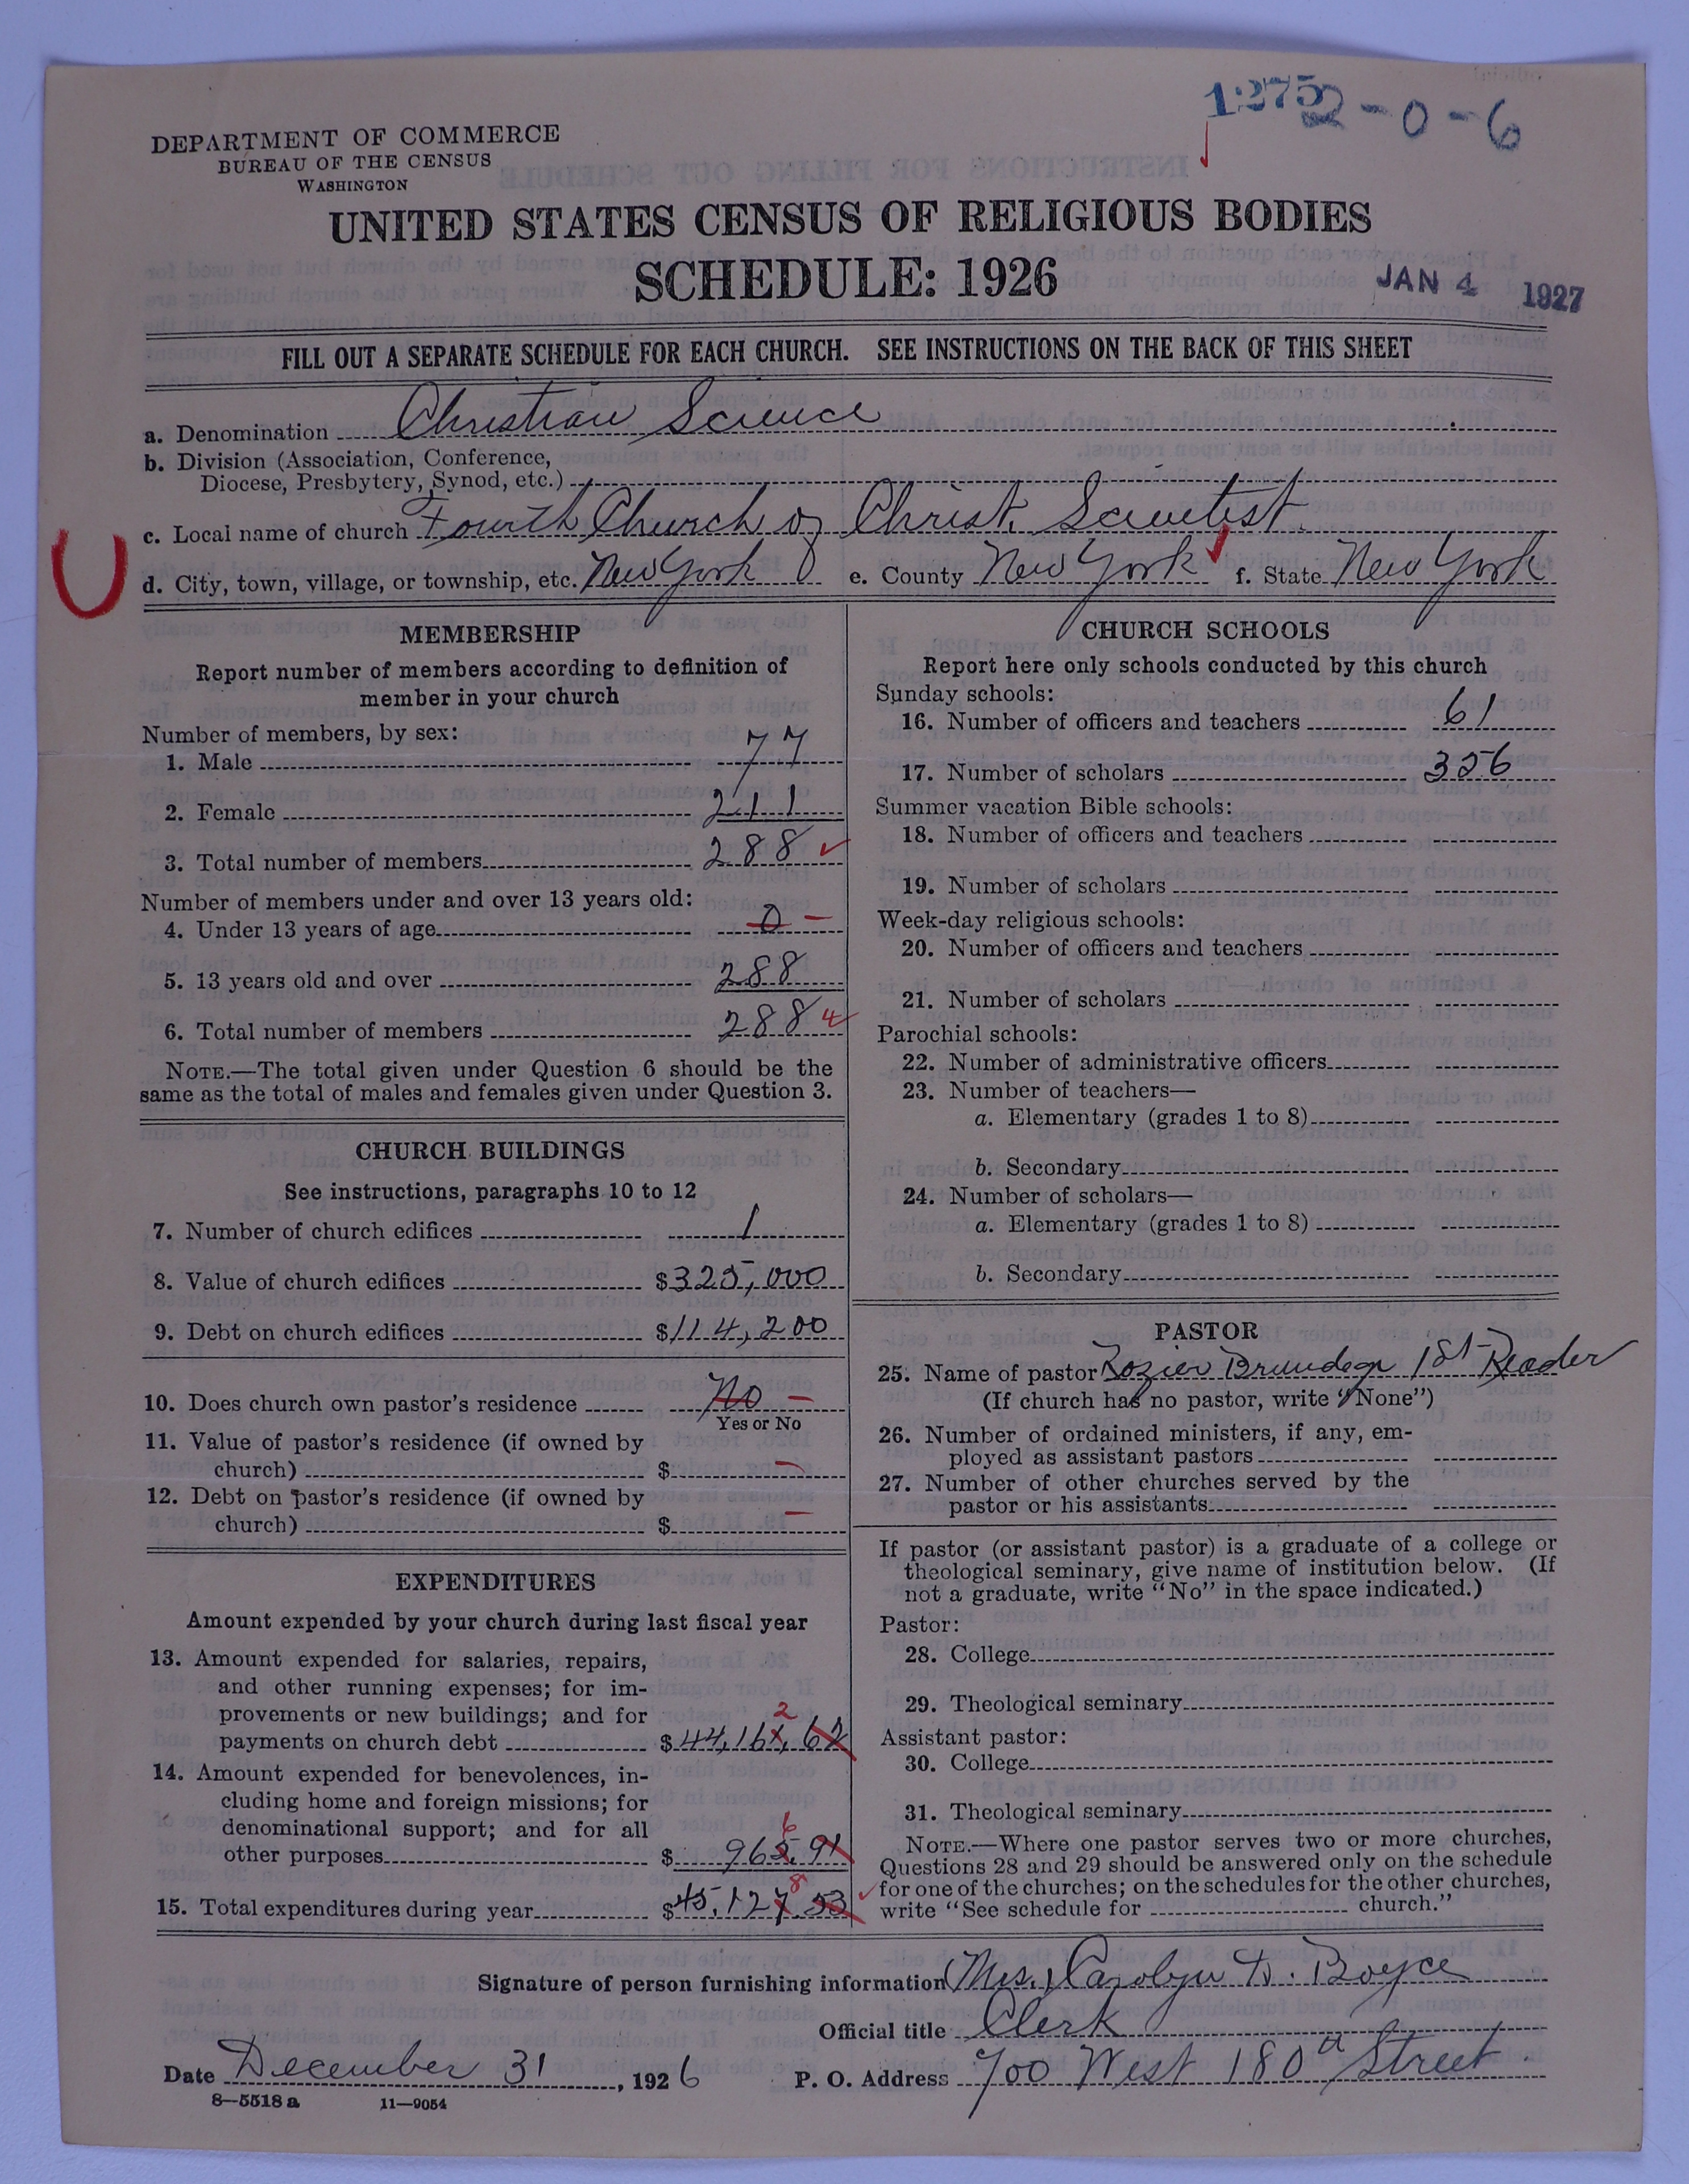 1275 2-0-6
DEPARTMENT OF COMMERCE
BUREAU OF THE CENSUS
WASHINGTON
UNITED STATES CENSUS OF RELIGIOUS BODIES
SCHEDULE: 1926
JAN 4 1927
FILL OUT A SEPARATE SCHEDULE FOR EACH CHURCH. SEE INSTRUCTIONS ON THE BACK OF THIS SHEET
a. Denomination Christian Science
b. Division (Association, Conference,
Diocese, Presbytery, Synod, etc.)
c. Local name of church Fourth Church of Christ, Scientist.
d. City, town, village, or township, etc. New York e. County New York f. State New York
MEMBERSHIP
Report number of members according to definition of
member in your church
Number of members, by sex:
1. Male 77
2. Female 211
3. Total number of members 288
Number of members under and over 13 years old:
4. Under 13 years of age 0
5. 13 years old and over 288
6. Total number of members 288
NOTE.—The total given under Question 6 should be the
same as the total of males and females given under Question 3.
CHURCH BUILDINGS
See instructions, paragraphs 10 to 12
7. Number of church edifices 1
8. Value of church edifices $325,000
9. Debt on church edifices $114,200
10. Does church own pastor's residence No
Yes or No
11. Value of pastor's residence (if owned by
church) $
12. Debt on pastor's residence (if owned by
church) $
EXPENDITURES
Amount expended by your church during last fiscal year
13. Amount expended for salaries, repairs,
and other running expenses; for im-
provements or new buildings; and for
2
payments on church debt $44,161,62
14. Amount expended for benevolences, in-
cluding home and foreign missions; for
denominational support; and for all
6
other purposes $ 965,91
8
15. Total expenditures during year $45,127.53
CHURCH SCHOOLS
Report here only schools conducted by this church
Sunday schools:
16. Number of officers and teachers 61
17. Number of scholars 356
Summer vacation Bible schools:
18. Number of officers and teachers
19. Number of scholars
Week-day religious schools:
20. Number of officers and teachers
21. Number of scholars
Parochial schools:
22. Number of administrative officers
23. Number of teachers—
a. Elementary (grades 1 to 8)
b. Secondary
24. Number of scholars—
a. Elementary (grades 1 to 8)
b. Secondary
PASTOR
25. Name of pastor Rozier 1st Reader
(If church has no pastor, write "None")
26. Number of ordained ministers, if any, em-
ployed as assistant pastors
27. Number of other churches served by the
pastor or his assistants
If pastor (or assistant pastor) is a graduate of a college or
theological seminary, give name of institution below. (If
not a graduate, write "No" in the space indicated.)
Pastor:
28. College
29. Theological seminary
Assistant pastor:
30. College
31. Theological seminary
NOTE.—Where one pastor serves two or more churches,
Questions 28 and 29 should be answered only on the schedule
for one of the churches; on the schedules for the other churches,
write "See schedule for church."
Signature of person furnishing information Mrs. Carolyn D. Boyce
Official title Clerk
Date December 31, 1926 P. O. Address 700 West 180th Street.
8—5518a 11—9054